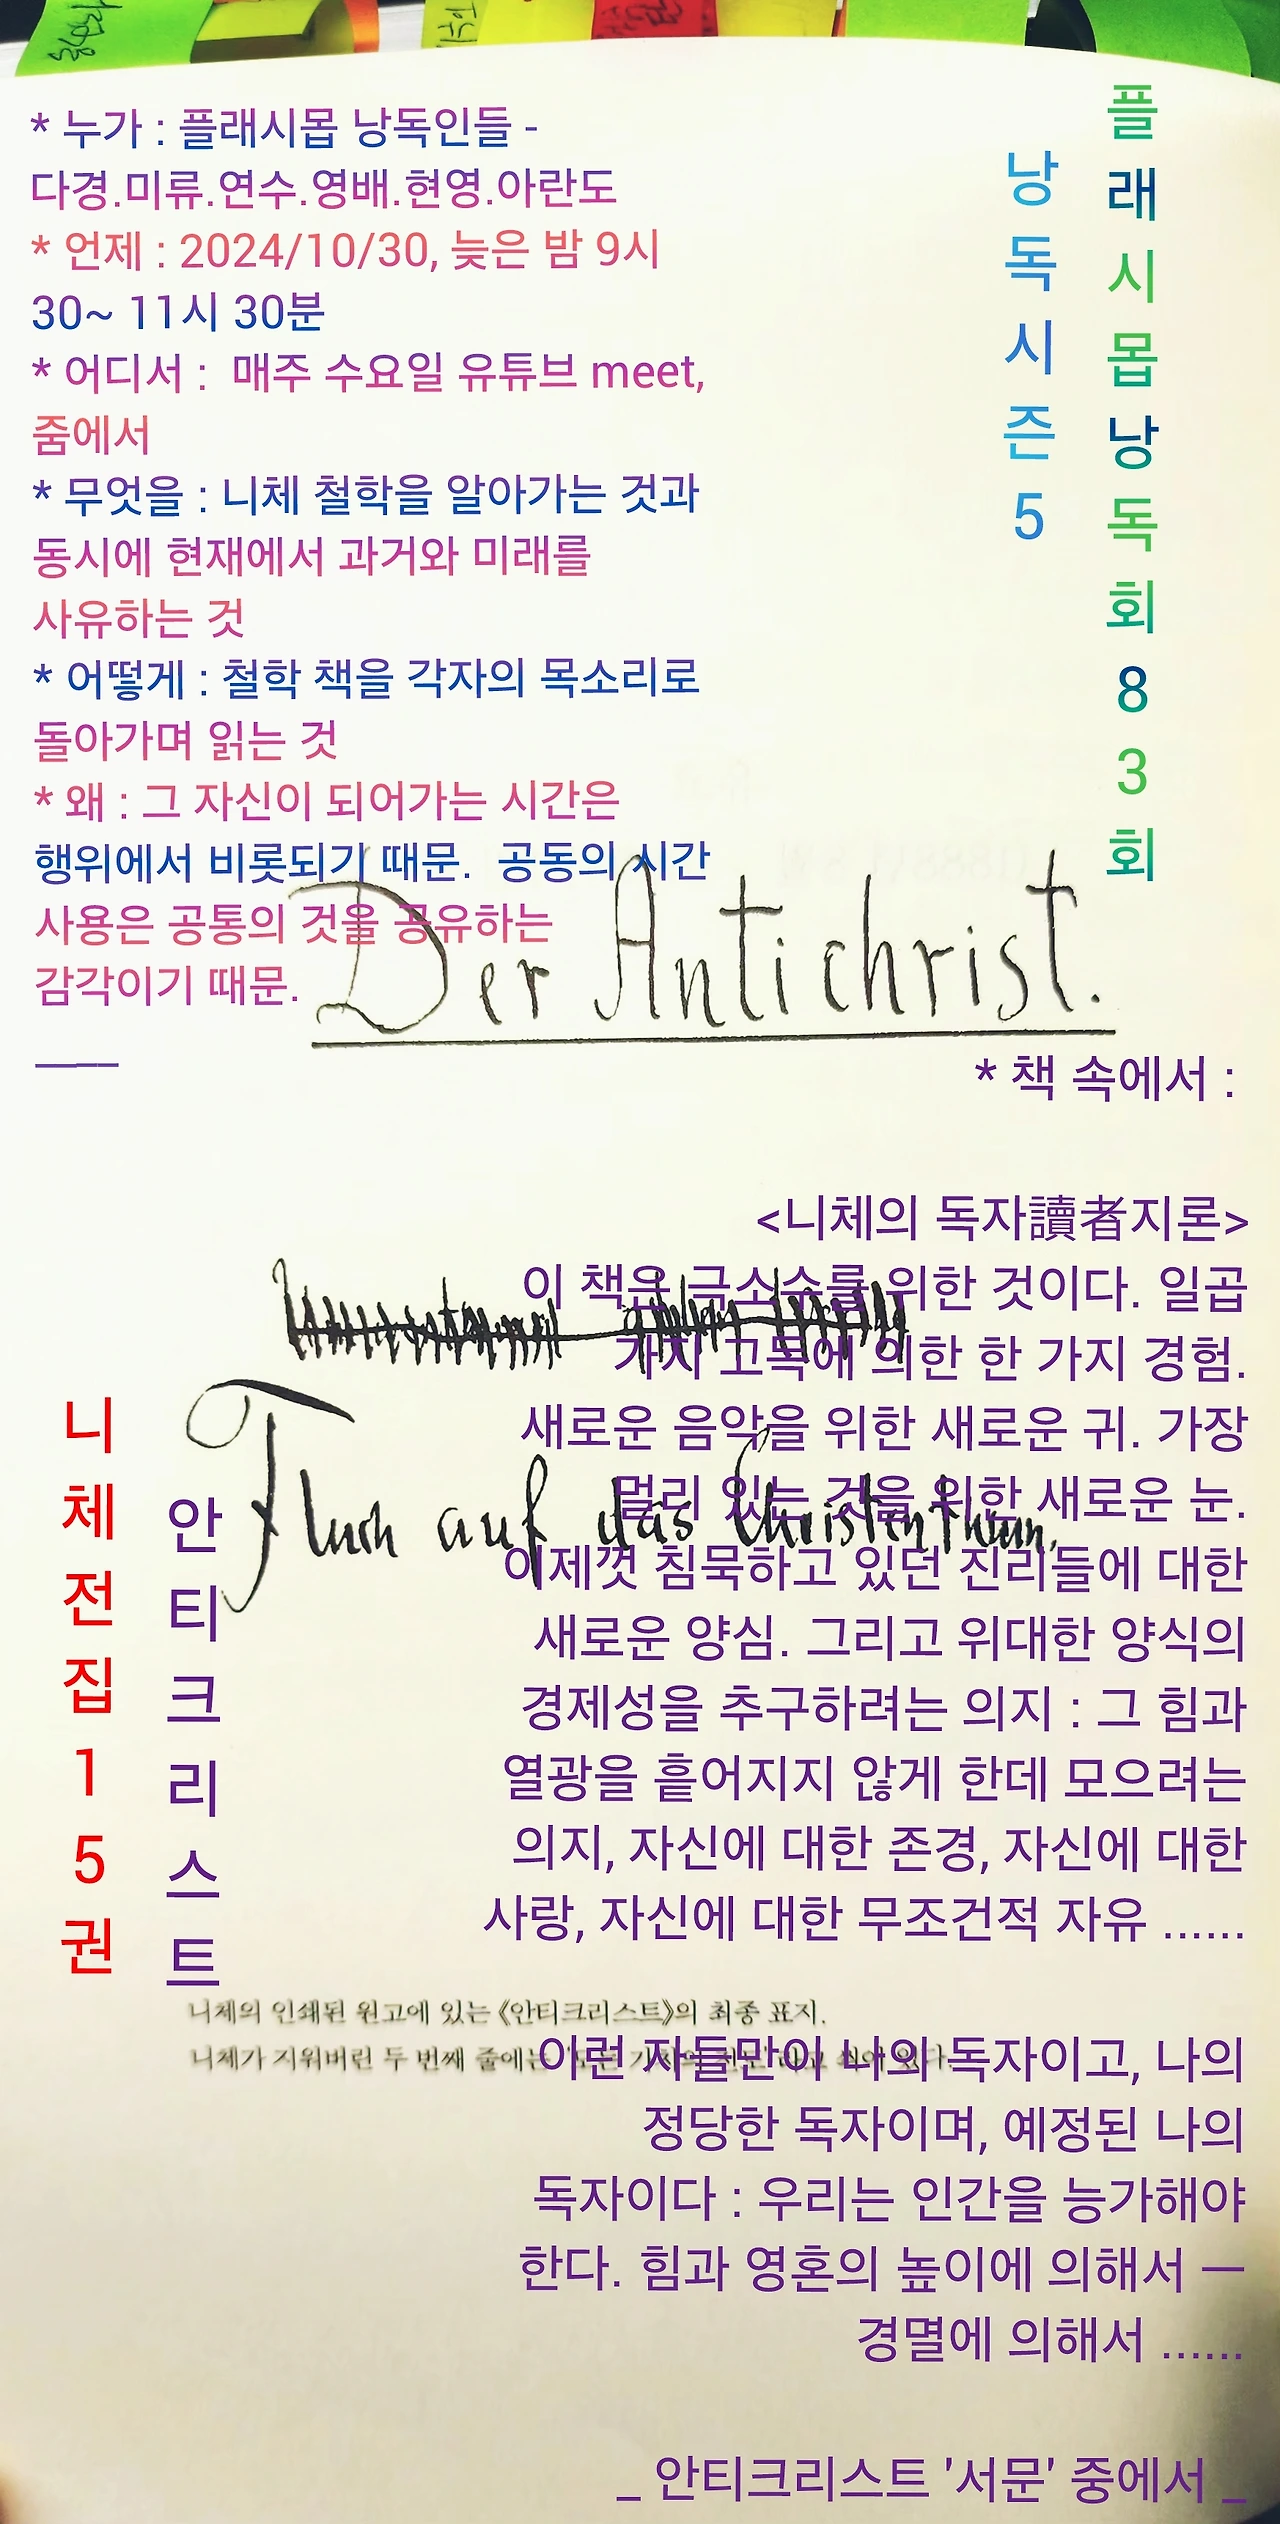 * 누가 : 플래시몹 낭독인들 -
다경.미류.연수.영배.현영.아란도
* 언제 : 2024/10/30, 늦은 밤 9시
30~ 11시 30분
* 어디서 :  매주 수요일 유튜브 meet,
줌에서
* 무엇을 : 니체 철학을 알아가는 것과
동시에 현재에서 과거와 미래를
사유하는 것
* 어떻게 : 철학 책을 각자의 목소리로
돌아가며 읽는 것
* 왜 : 그 자신이 되어가는 시간은
행위에서 비롯되기 때문.  공동의 시간
사용은 공통의 것을 공유하는
감각이기 때문.
플래시몹낭독회83회
낭독시즌5
Der Antichrist.
* 책 속에서 :
<니체의 독자讀者지론>
이 책은 극소수를 위한 것이다. 일곱
가지 고독에 의한 한 가지 경험.
새로운 음악을 위한 새로운 귀. 가장
멀리 있는 것을 위한 새로운 눈.
이제껏 침묵하고 있던 진리들에 대한
새로운 양심. 그리고 위대한 양식의
경제성을 추구하려는 의지 : 그 힘과
열광을 흩어지지 않게 한데 모으려는
의지, 자신에 대한 존경, 자신에 대한
사랑, 자신에 대한 무조건적 자유 ......
Fluch auf das Christenthum.
니체전집15권
안티크리스트
니체의 인쇄된 원고에 있는 《안티크리스트》의 최종 표지.
니체가 지워버린 두 번째 줄에는
이런 자들만이 나의 독자이고, 나의
정당한 독자이며, 예정된 나의
독자이다 : 우리는 인간을 능가해야
한다. 힘과 영혼의 높이에 의해서 ―
경멸에 의해서 ......
_ 안티크리스트 '서문' 중에서 _